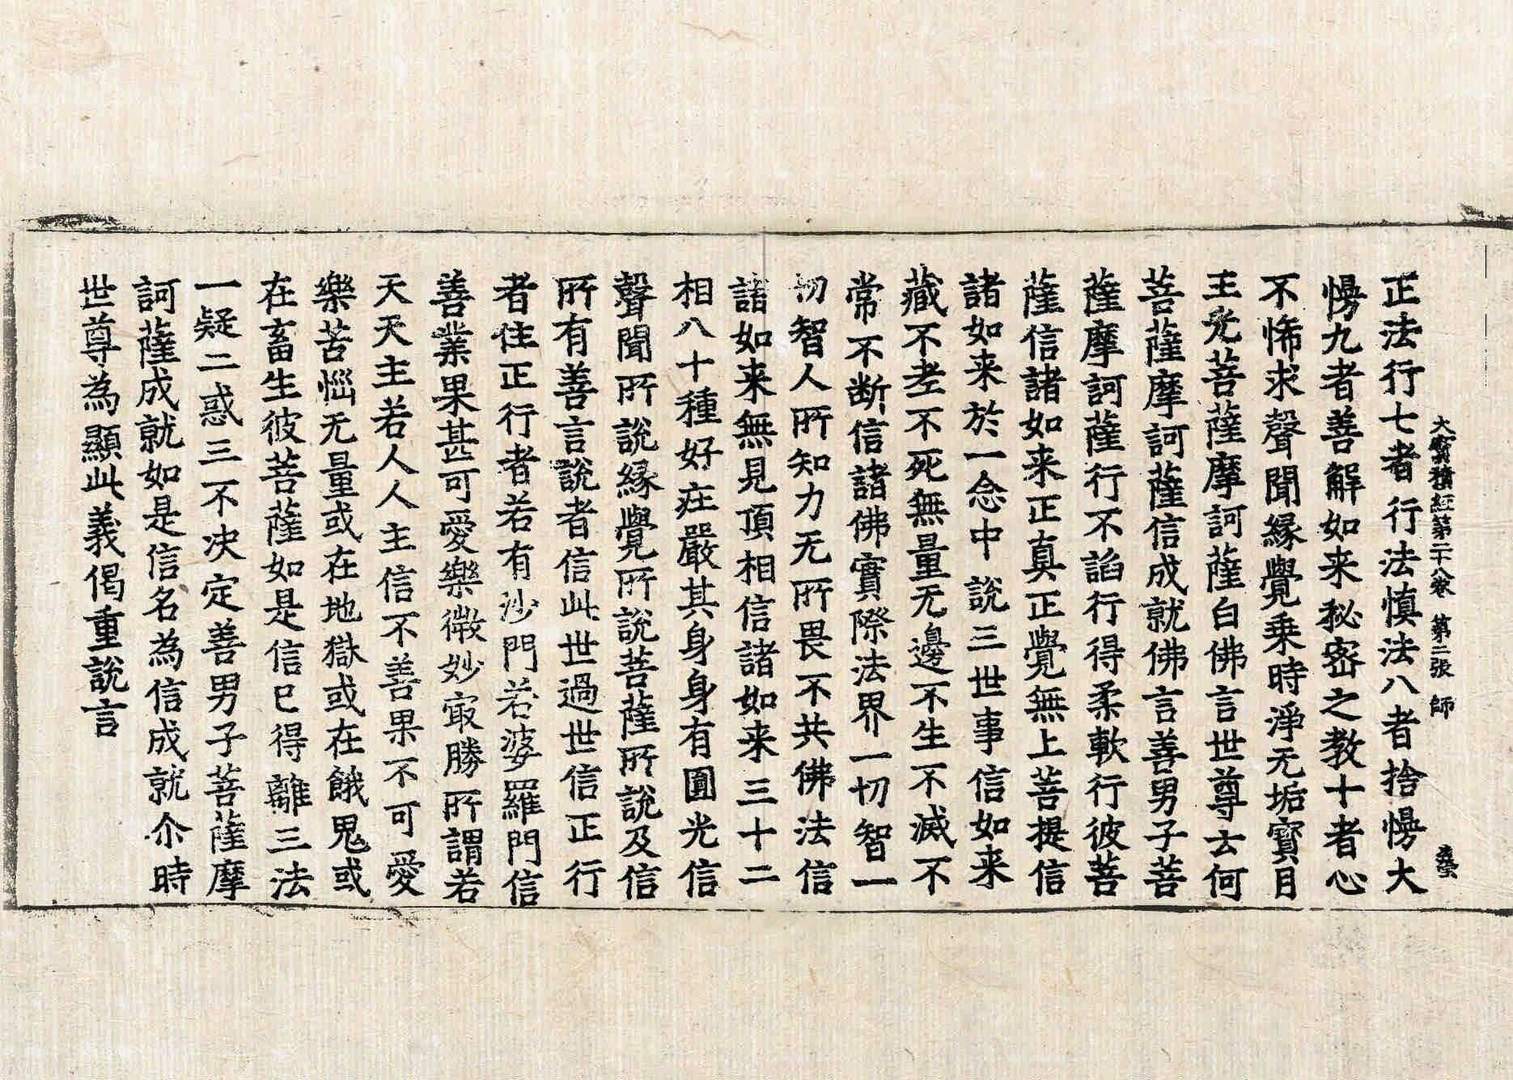 大寶積經第二十八卷　第二張　師
正法行七者行法慎法八者捨慢大
慢九者善解如来秘密之教十者心
不悕求聲聞緣覺乗時淨无垢寶月
王光菩薩摩訶薩白佛言世尊云何
菩薩摩訶薩信成就佛言善男子菩
薩摩訶薩行不諂行得柔軟行彼菩
薩信諸如来正真正覺無上菩提信
諸如来於一念中說三世事信如来
藏不老不死無量无邊不生不滅不
常不断信諸佛實際法界一切智一
切智人所知力无所畏不共佛法信
諸如来無見頂相信諸如来三十二
相八十種好莊嚴其身身有圓光信
聲聞所說緣覺所說菩薩所說及信
所有善言說者信此世過世信正行
者住正行者若有沙門若婆羅門信
善業果甚可愛樂微妙冣勝所謂若
天天主若人人主信不善果不可愛
樂苦惱无量或在地獄或在餓鬼或
在畜生彼菩薩如是信已得離三法
一疑二惑三不决定善男子菩薩摩
訶薩成就如是信名為信成就尒時
世尊為顯此義偈重說言